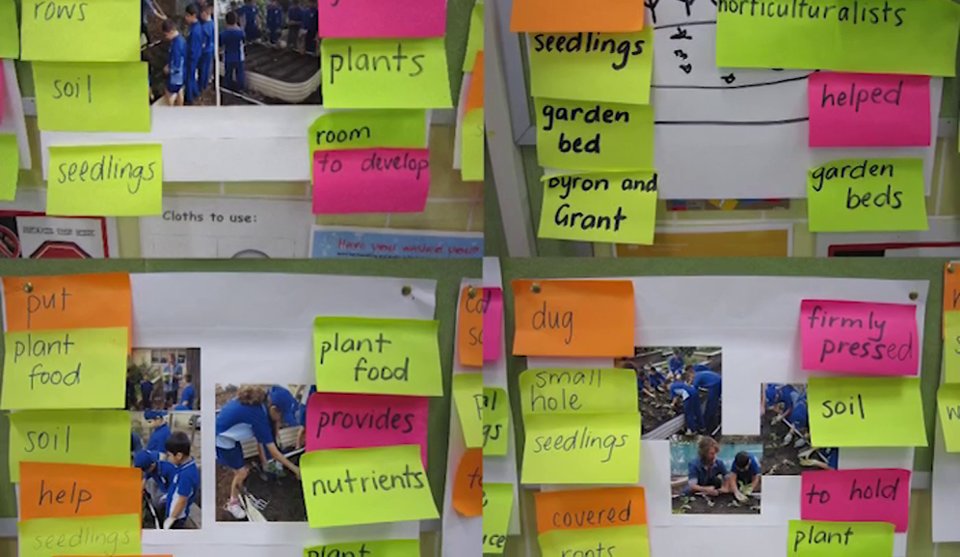 rows
plants
soil
room
to develop
seedlings
Cloths to use:
horticulturalists
seedlings
helped
garden
bed
garden
beds
Byron and
Grant
put
plant
food
plant
food
soil
provides
help
nutrients
seedlings
plant
dug
firmly
pressed
small
hole
soil
seedlings
to hold
covered
plant
roots